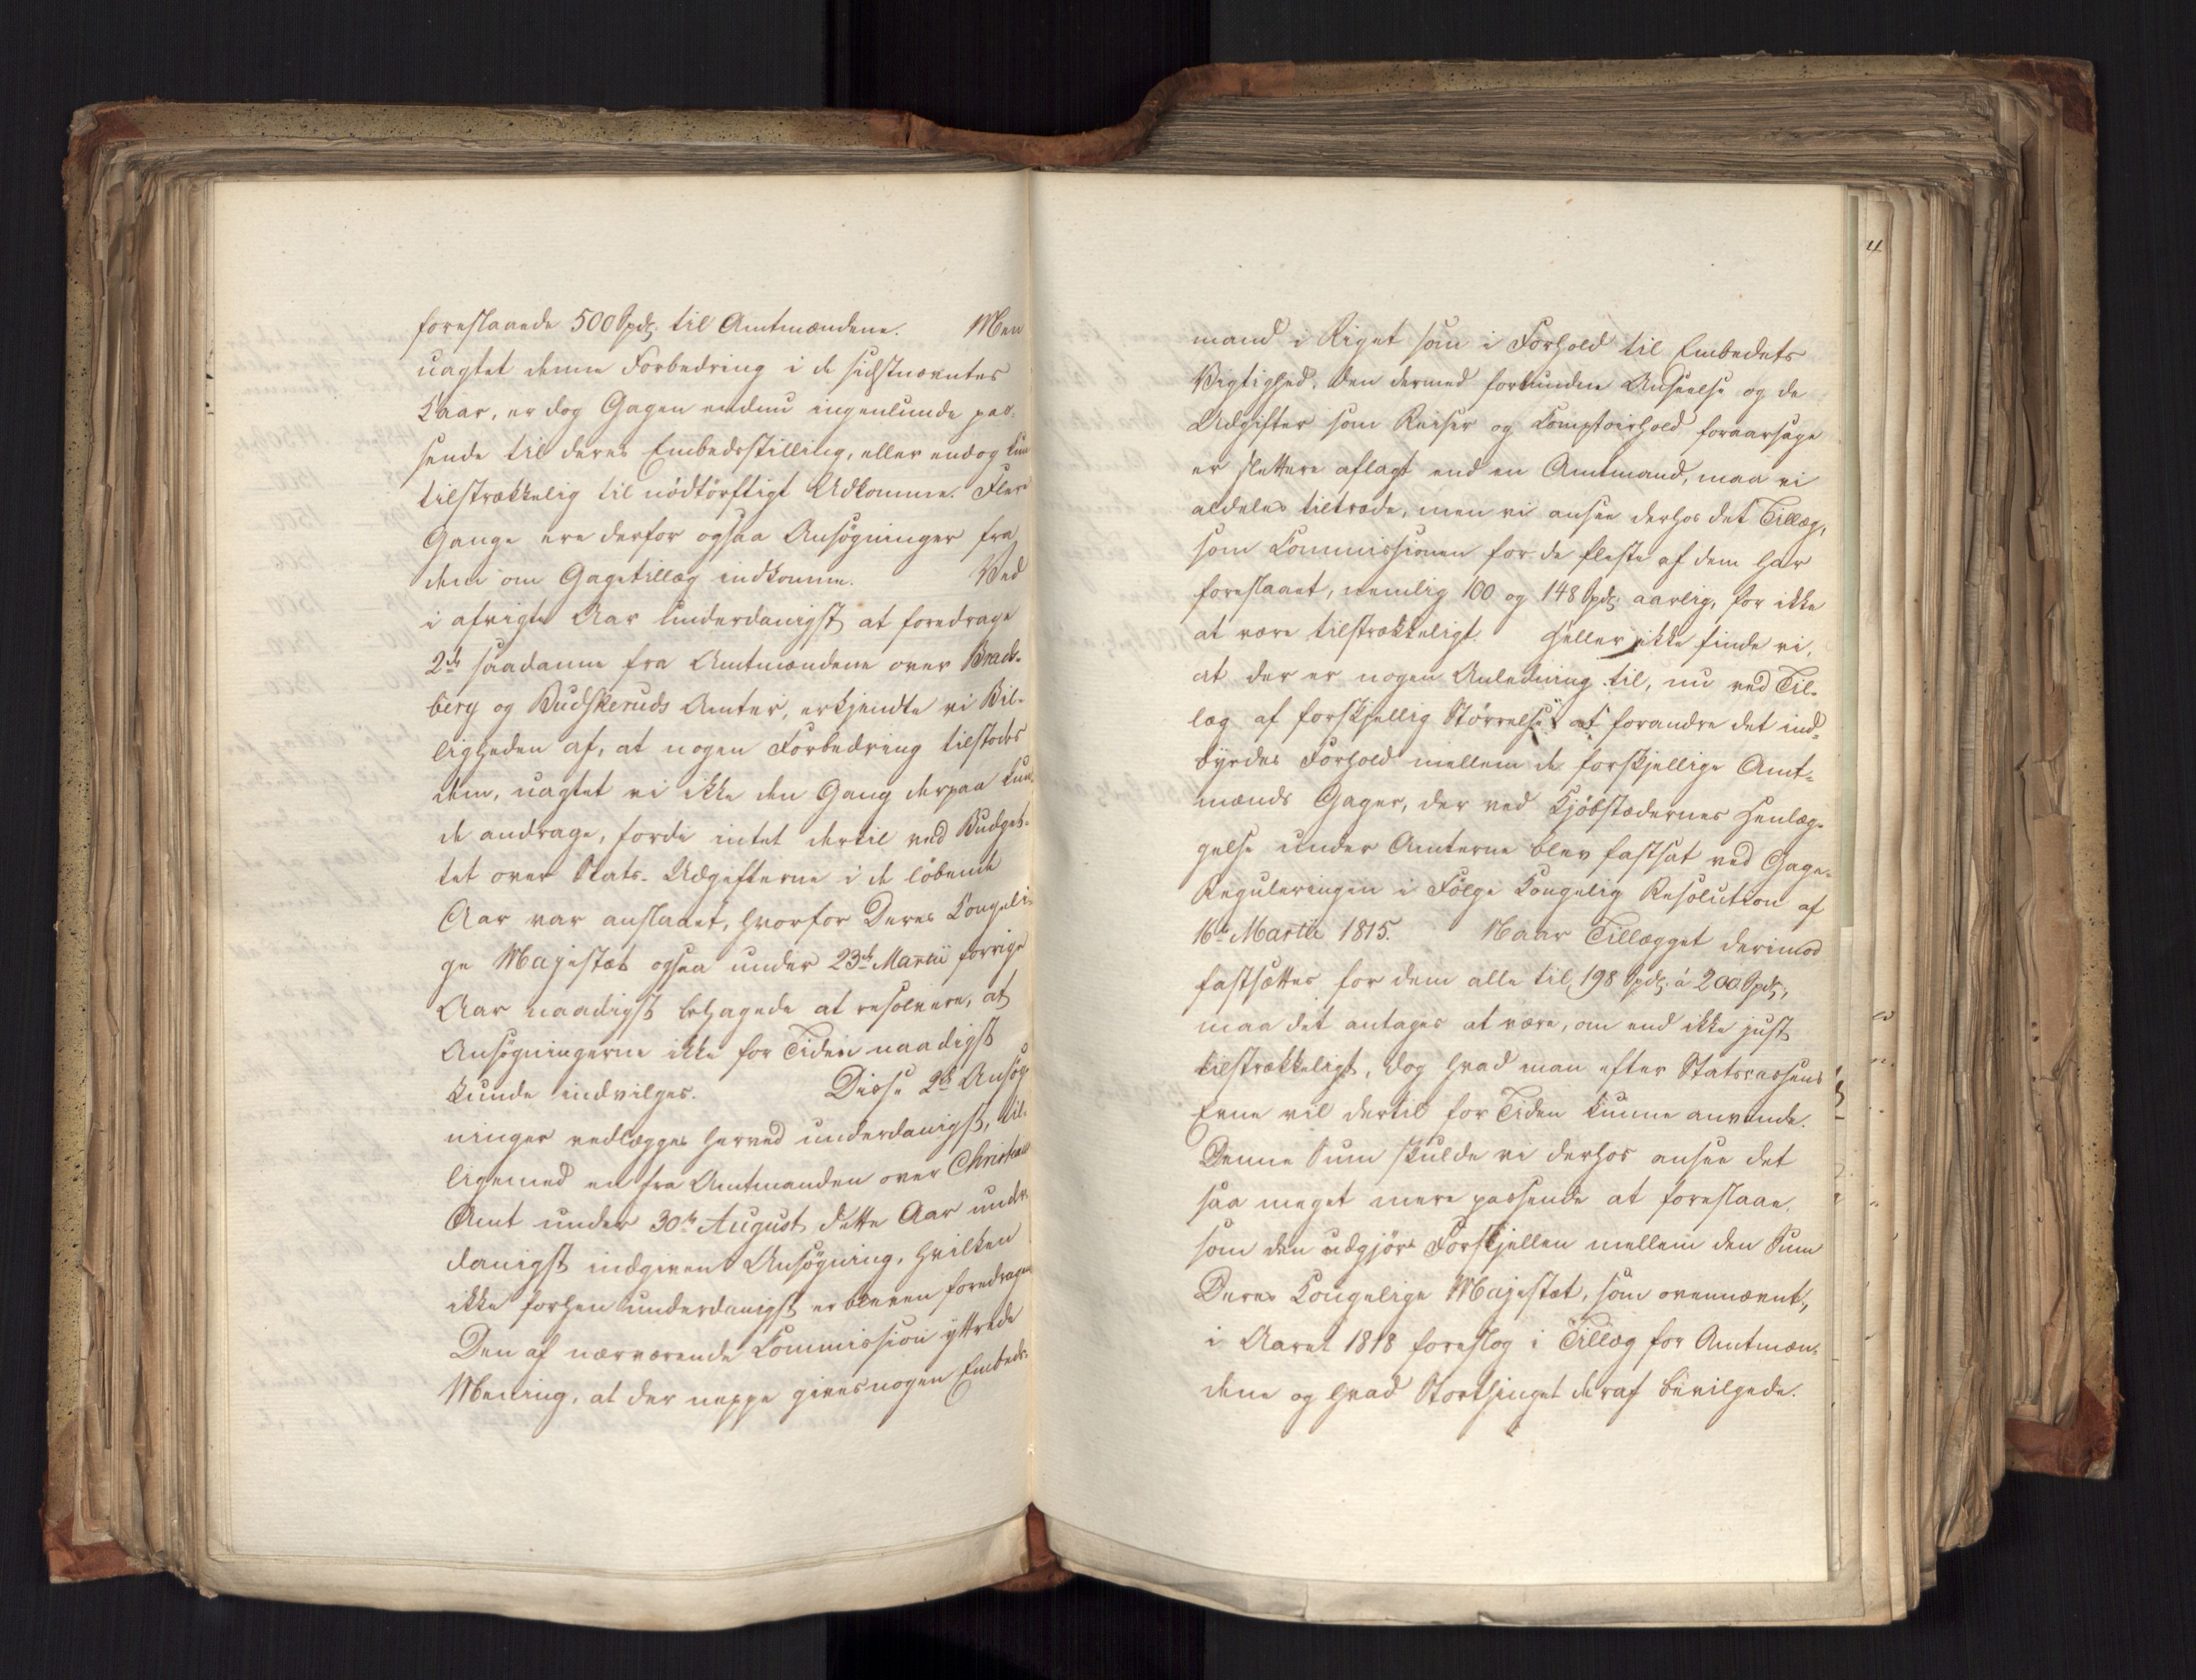 foreslaaede 500 Spd. til Amtmændene. Men
uagtet denne Forbedring i de sidstnævntes
Kaar, er dog Gagen endnu ingenlunde pas-
sende til deres Embedsstilling, eller endog kun
tilstrækkelig til nødtørftigt Udkomme. Flere
Gange ere derfor ogsaa Ansøgninger fra
dem om Gagetillæg indkomne. Ved
i afvigte Aar underdanigst at foredrage
2de saadanne fra Amtmændene over Brads-
berg og Budskeruds Amter, erkjendte vi Bil-
ligheden af, at nogen Forbedring tilstodes
dem, uagtet vi ikke den Gang derpaa kun-
de andrage, fordi intet dertil ved Budget-
tet over Stats-Udgifterne i de løbende
Aar var anslaaet, hvorfor Deres Kongeli-
ge Majestæt ogsaa under 23de Martii forrige
Aar naadigst behagede at resolvere, at
Ansøgningerne ikke for Tiden naadigst
kunde indvilges. Disse 2de Ansøg-
ninger vedlægges herved underdanigst, til-
ligemed en fra Amtmanden over Christians
Amt under 30te August dette Aar under-
danigst indgiven Ansøgning, hvilken
ikke forhen underdanigst er bleven foredragen
Den af nærværende Commission yttrede
Mening, at der neppe gives nogen Embeds-
4
mand i Riget som i Forhold til Embedets
Vigtighed, den dermed forbundne Anseelse og de
Udgifter som Reiser og Comptoirhold foraarsage
er slettere aflagt end en Amtmand, maa vi
aldeles tiltræde, men vi ansee derhos det Tillæg,
som Commissionen for de fleste af dem har
foreslaaet, nemlig 100 og 148 Spd. aarlig, for ikke
at være tilstrækkeligt. Heller ikke finde vi,
at der er nogen Anledning til, nu ved Til-
læg af forskjellig Størrelse at forandre det ind-
byrdes Forhold mellem de forskjellige Amt-
mænds Gager, der ved Kjøbstædernes Henlæg-
gelse under Amterne blev fastsat ved Gage-
Reguleringen i Følge Kongelig Resolution af
16de Martii 1815. Naar Tillægget derimod
fastsættes for dem alle til 198 Spd. á 200 Spd.,
maa det antages at være, om end ikke just
tilstrækkeligt, dog hvad man efter Statscassens
Evne vil dertil for Tiden kunne anvende.
Denne Sum skulde vi derhos ansee det
saa meget mere passende at foreslaae,
som den udgjør Forskjellen mellem den Sum
Deres Kongelige Majestæt, som ovennævnt,
i Aaret 1818 foreslog i Tillæg for Amtmæn-
dene og hvad Storthinget deraf bevilgede.